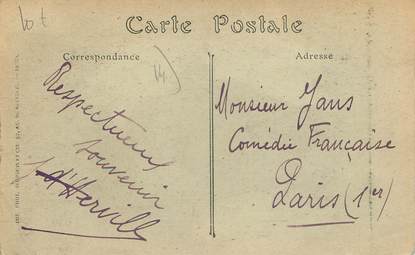 Carte Postale
Correspondance
Adresse
Respectueux
souvenir
d'Herville
Monsieur Jans
Comédie Française
Paris (1er)